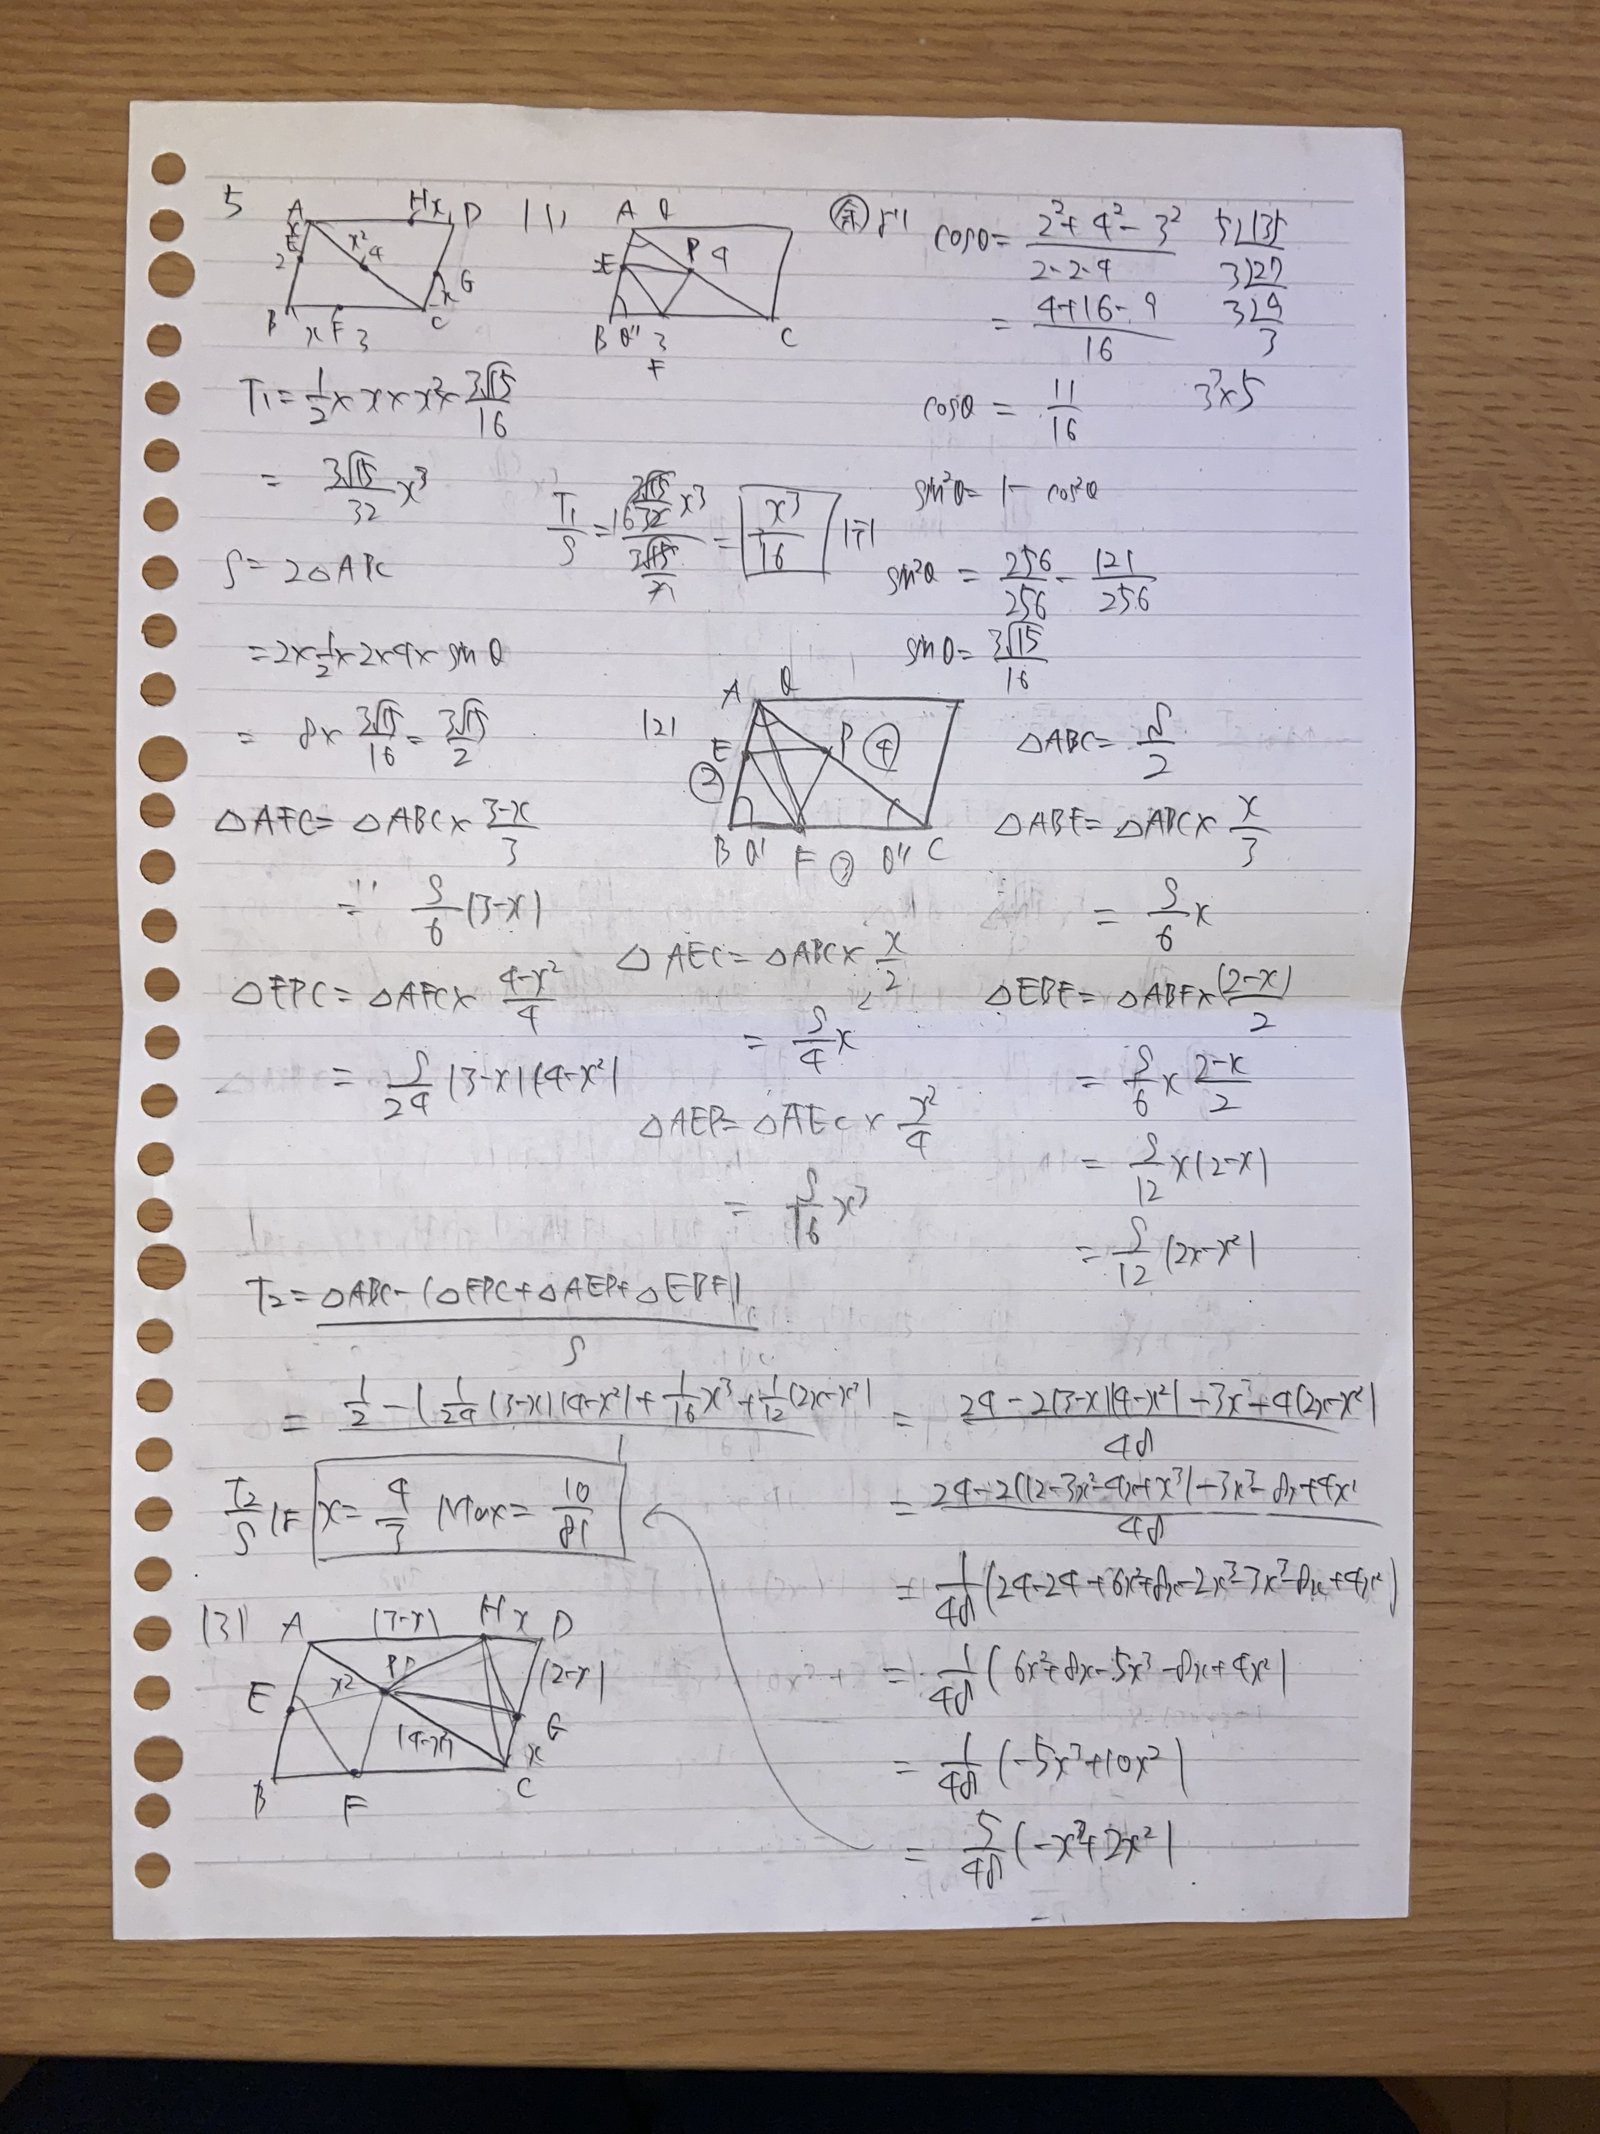 5
A H x D
x
E x² 4
2
G
x
B x F 3 C
(1)
A θ
x E P 4
B θ' 3 C
F
余 より cosθ = \frac{2²+4²-3²}{2·2·4}
= \frac{4+16-9}{16}
cosθ = \frac{11}{16}
sin²θ = 1 - cos²θ
sin²θ = \frac{256}{256} - \frac{121}{256}
sinθ = \frac{3√15}{16}
5)135
3)27
3)9
3
3³×5
T₁ = \frac{1}{2} × x × x² × \frac{3√15}{16}
= \frac{3√15}{32} x³
S = 2△ABC
= 2×\frac{1}{2}×2×4× sinθ
= 8× \frac{3√15}{16} = \frac{3√15}{2}
\frac{T₁}{S} = = \frac{x³}{16}
(2)
A θ
E P ④
②
B θ' F ③ θ'' C
△ABC = \frac{S}{2}
△AFC = △ABC × \frac{3-x}{3}
= \frac{S}{6}(3-x)
△FPC = △AFC × \frac{4-x²}{4}
= \frac{S}{24}(3-x)(4-x²)
△AEC = △ABC × \frac{x}{2}
= \frac{S}{4}x
△AEP = △AEC × \frac{x²}{4}
= \frac{S}{16}x³
△ABF = △ABC × \frac{x}{3}
= \frac{S}{6}x
△EBF = △ABF × \frac{(2-x)}{2}
= \frac{S}{6}x \frac{2-x}{2}
= \frac{S}{12}x(2-x)
= \frac{S}{12}(2x-x²)
T₂ = \frac{△ABC - (△FPC + △AEP + △EBF)}{S}
= \frac{\frac{1}{2} - (\frac{1}{24}(3-x)(4-x²) + \frac{1}{16}x³ + \frac{1}{12}(2x-x²)}{1}
= \frac{24 - 2(3-x)(4-x²) - 3x³ + 4(2x-x²)}{48}
= \frac{24 - 2(12-3x²-4x+x³) - 3x³ - 8x + 4x²}{48}
= \frac{1}{48}(24 - 24 + 6x² + 8x - 2x³ - 3x³ - 8x + 4x²)
= \frac{1}{48}(6x² + 8x - 5x³ - 8x + 4x²)
= \frac{1}{48}(-5x³ + 10x²)
= \frac{5}{48}(-x³ + 2x²)
\frac{T₂}{S} は x = \frac{4}{3} Max = \frac{10}{81}
(3)
A (3-x) H x D
P
(2-x)
E x²
G
(4-x²)
x
B F C